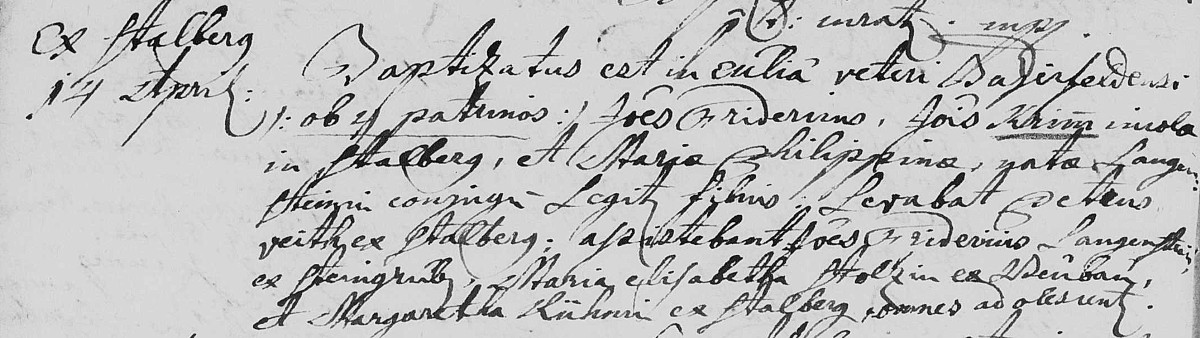 jurat. mp.
Ex Stalberg
14 April:
Baptizatus est in eccliâ veteri Bayerfeldensi
/: ob 4 patrinos :/ Joês Fridericus, Jois Krim̃ incola
in Stalberg, et Mariæ Philippinæ, natæ Langen-
steinin conjugũ Legit. filius. Levabat Petrus
veith ex Stalberg; assistebant Joês Fridericus Langenstein,
ex Steingrub, Maria elisabetha Stoltzin ex Neübau,
et Margaretha Kühnin ex Stalberg, omnes adolescent.